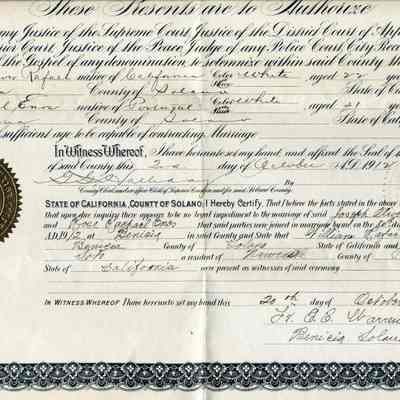 These Presents are to Authorize
any Justice of the Supreme Court, Justice of the District Court of App
rior Court, Justice of the Peace, Judge of any Police Court, City Reco
the Gospel of any denomination, to solemnize within said County the
Rafael native of California Color White aged 22 yea
County of Solano State of Cali
Enos native of Portugal Color White aged 21
County of Solano State of Cali
sufficient age to be capable of contracting Marriage
In Witness Whereof, I have hereunto set my hand, and affixed the Seal of th
of said County this 2nd day of October A.D. 1912
By
County Clerk and ex-officio Clerk of Superior Court in and for said Solano County.
STATE OF CALIFORNIA, COUNTY OF SOLANO, I Hereby Certify, That I believe the facts stated in the above
that upon due inquiry there appears to be no legal impediment to the marriage of said Joseph
and Rose Enos that said parties were joined in marriage by me on the
A.D. 1912 at Benicia in said County and State that William
Benicia County of Solano State of California and
a resident of County of
State of California were present as witnesses of said ceremony
IN WITNESS WHEREOF I have hereunto set my hand this 20th day of October
Fr. C. C. Warren
Benicia Solan